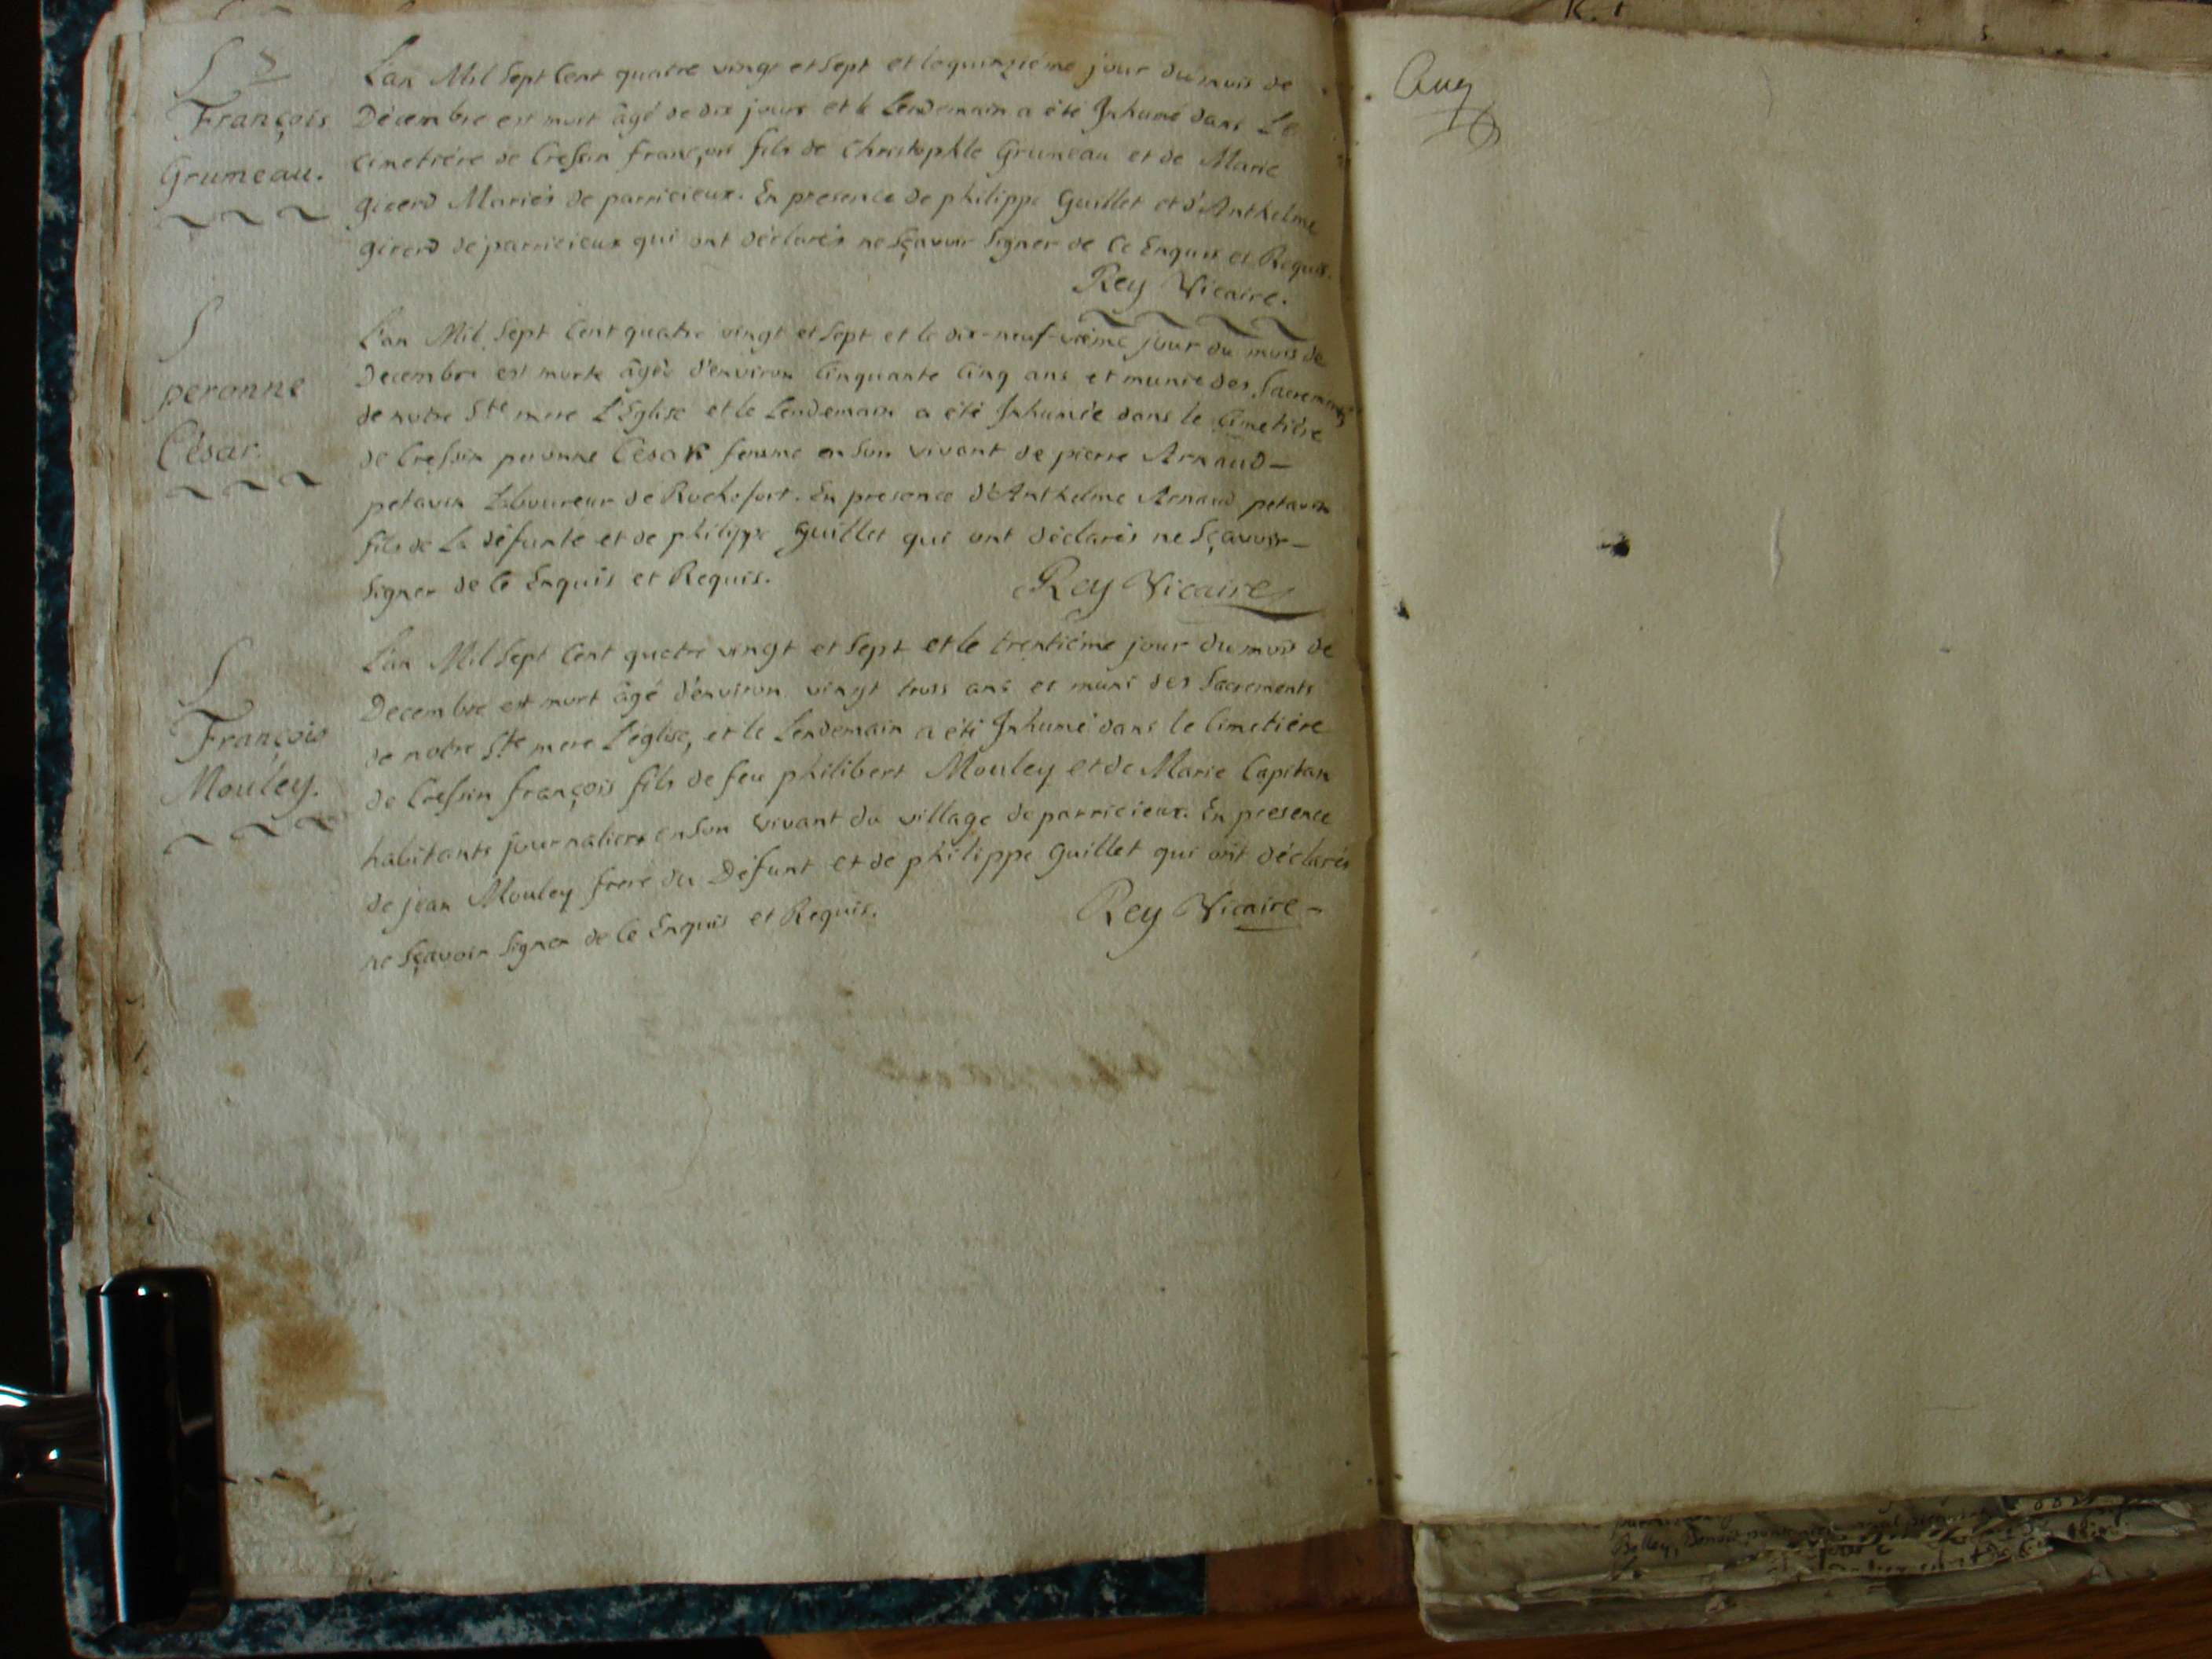 S
François
Grumeau.
L'an Mil Sept Cent quatre vingt et Sept et le quinziéme jour du mois de
Décembre est mort âgé de dix jours et le Lendemain a été Inhumé dans Le
Cimetiére de Cressin françois fils de Christophle Grumeau et de Marie
girerd Mariés de parricieux. En presence de philippe Guillet et d'Anthelme
girerd de parricieux qui ont déclarés ne Sçavoir Signer de Ce Enquis et Requis.
Rey Vicaire.
S
peronne
César.
L'an Mil Sept Cent quatre vingt et Sept et le dix-neuf-viéme jour du mois de
Decembre est morte âgée d'environ Cinquante Cinq ans et munie des Sacrements
de notre Ste mere L'Eglise et le Lendemain a été Inhumée dans le Cimetiére
de Cressin peronne César femme en Son vivant de pierre Arnaud-
petavin Laboureur de Rochefort. En presence d'Anthelme Arnaud petavin
fils de La défunte et de philippe Guillet qui ont déclarés ne Sçavoir-
Signer de Ce Enquis et Requis.
Rey Vicaire
S
François
Mouley.
L'an Mil Sept Cent quatre vingt et Sept et le trentiéme jour du mois de
Decembre est mort âgé d'environ vingt trois ans et muni des Sacrements
de notre Ste mere L'église, et le Lendemain a été Inhumé dans le Cimetiére
de Cressin françois fils de feu philibert Mouley et de Marie Capitan
habitants journaliers en Son vivant du village de parricieux. En presence
de jean Mouley frere du Défunt et de philippe Guillet qui ont déclarés
ne Sçavoir Signer de Ce Enquis et Requis.
Rey Vicaire-
Aug